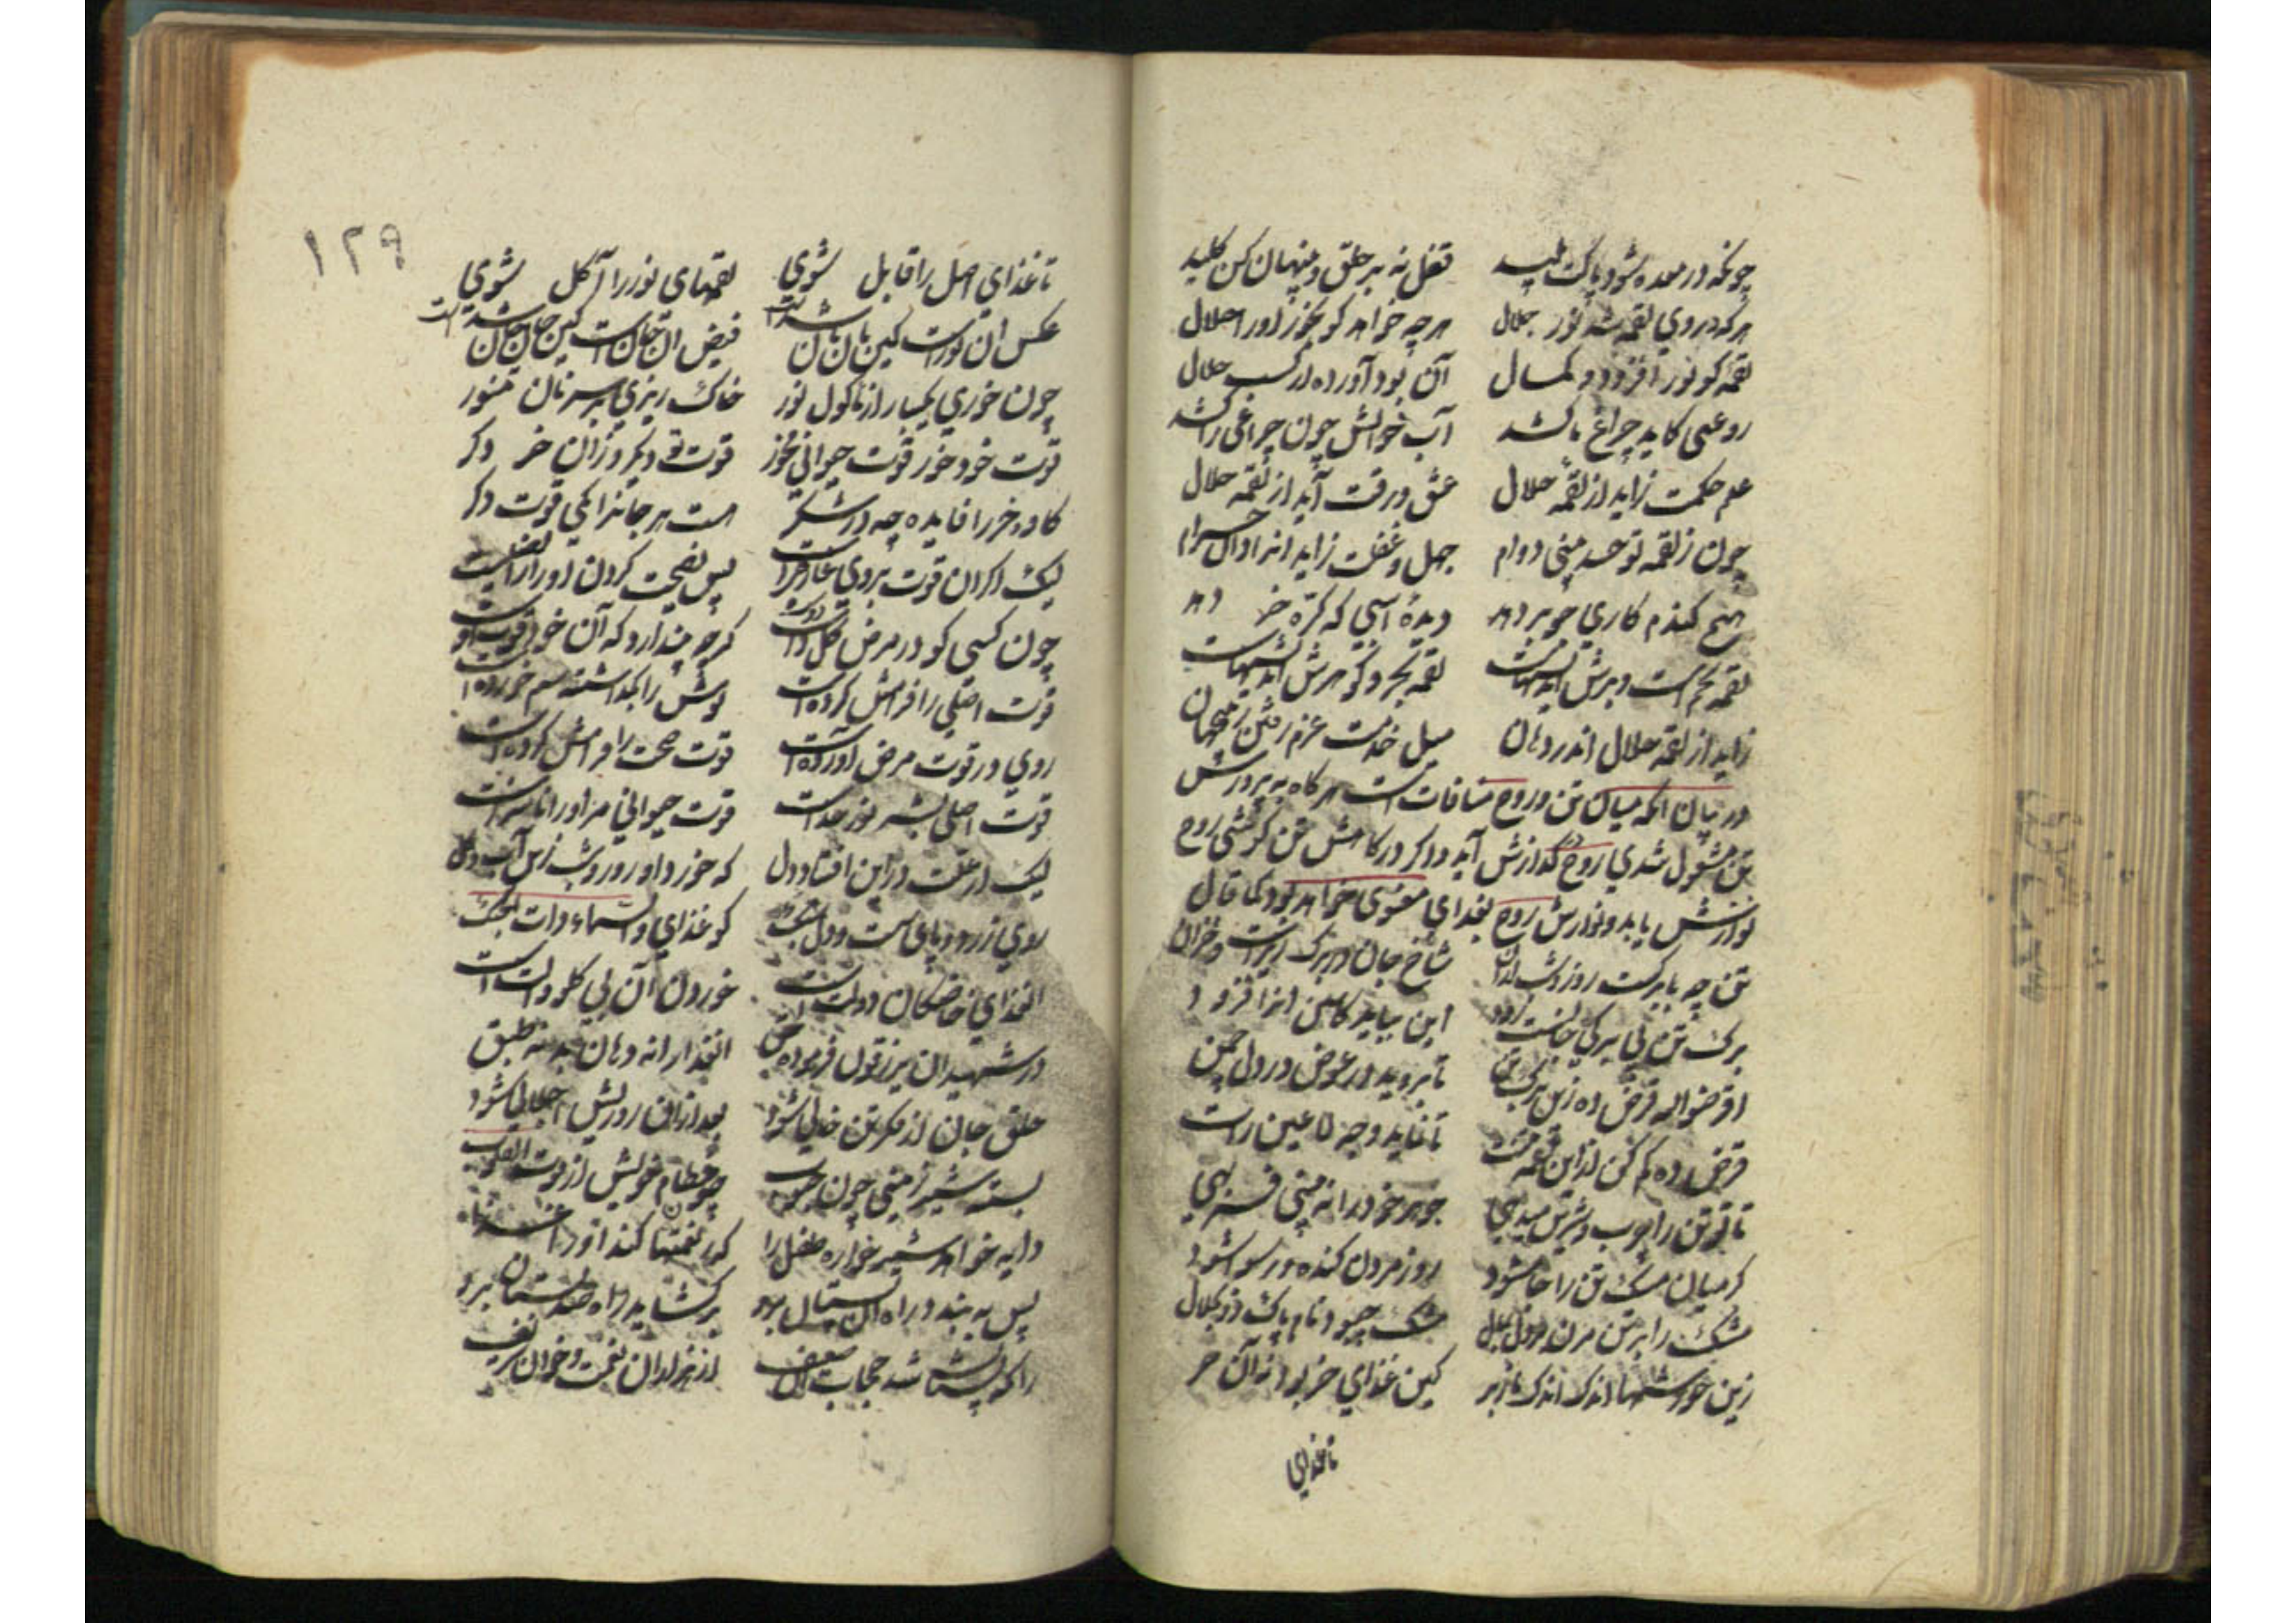 چونکه در معده شود پاکت پلید قفل نه بر حلق و پنهان کن کلید
هرکه در وی لقمه شد نور جلال هر چه خواهد کو بخور او را حلال
لقمه کو نور افزود و کمال آن بود آورده از کسب حلال
روغنی کاید چراغ ما کشد آب خوانش چون چراغی را کشد
علم حکمت زاید از لقمه حلال عشق و رقت آید از لقمه حلال
چون ز لقمه تو حسد بینی دوام جهل و غفلت زاید انرا دان حرام
هیچ گندم کاری جو بر دهد دیدهٔ اسپی که کرّه خر دهد
لقمه تخم است و برش اندیشهاست لقمه بحر و گوهرش اندیشهاست
زاید از لقمه حلال اندر دهان میل خدمت عزم رفتن آن جهان
در بیان انکه میان تن و روح منافات است هرگاه به پرورش
تن مشغول شدی روح گدازش آید و اگر در کاهش تن کوشی روح
نوازش یابد و نوازش روح بغذای معنوی خواهد بود کما قال
تن چه با برکست روز و شب ازان شاخ جان در برک ریزست و خزان
برک تن بی برکی جانست زود این بباید کاستن انرا فزود
اقرضوا الله قرض ده زین برک تن تا بروید در عوض در دل چمن
قرض ده کم کن ازین لقمه تنت تا نماید وجه لا عین رات
تا تو تن را چرب و شیرین میدهی جوهر خود را نه بینی فربهی
گر میان مشک تن را جا شود روز مردن گنده و رسوا شود
مشک را بر تن مزن بر دل بمال مشک چبود نام پاک ذوالجلال
زین خورشها اندک اندک باز بر کین غذای خر بود نه آن حر
تا غذای
۱۲۹
تا غذای اصل را قابل شوی لقمهای نور را آکل شوی
عکس ان نورست کین نان نان شدست فیض ان جانست کین جان جان شدست
چون خوری یکبار از ماکول نور خاک ریزی بر سر نان تنور
قوت خود خور قوت حیوانی مخور قوت تو دیگر و زان خر دگر
گاو و خر را فایده چه در شکر هست هر جانرا یکی قوت دگر
لیک اگر ان قوت بروی عارضیست پس نصیحت کردن او را رایضیست
چون کسی کو در مرض گل داشت دوست گرچه پندارد که آن خود قوت اوست
قوت اصلی را فرامش کرده است نوش را بگذاشته سم خورده است
روی در قوت مرض آورده است قوت صحت را فرامش کرده است
قوت اصلی بشر نور خداست قوت حیوانی مر او را ناسزاست
لیک از علت درین افتاد دل که خورد او روز و شب زین آب و گل
روی زرد و پای سست و دل سبک کو غذای والسماء ذات الحبک
ان غذای خاصگان دولت است خوردن آن بی گلو و الت است
در شهیدان یرزقون فرموده حق ان غذا را نه دهان بد نه طبق
حلق جان از فکر تن خالی شود بعد ازان روزیش اجلالی شود
بسته شیر زمینی چون حبوب جو فطام خویش از قوت القلوب
دایه خواهد شیر خواره طفل را کو ز نعمتها کند او را غذا
پس به بندد راه ان پستان برو برگشاید راه صد بستان برو
زانکه پستان شد حجاب آن ضعیف از هزاران نعمت و خوان و رغیف